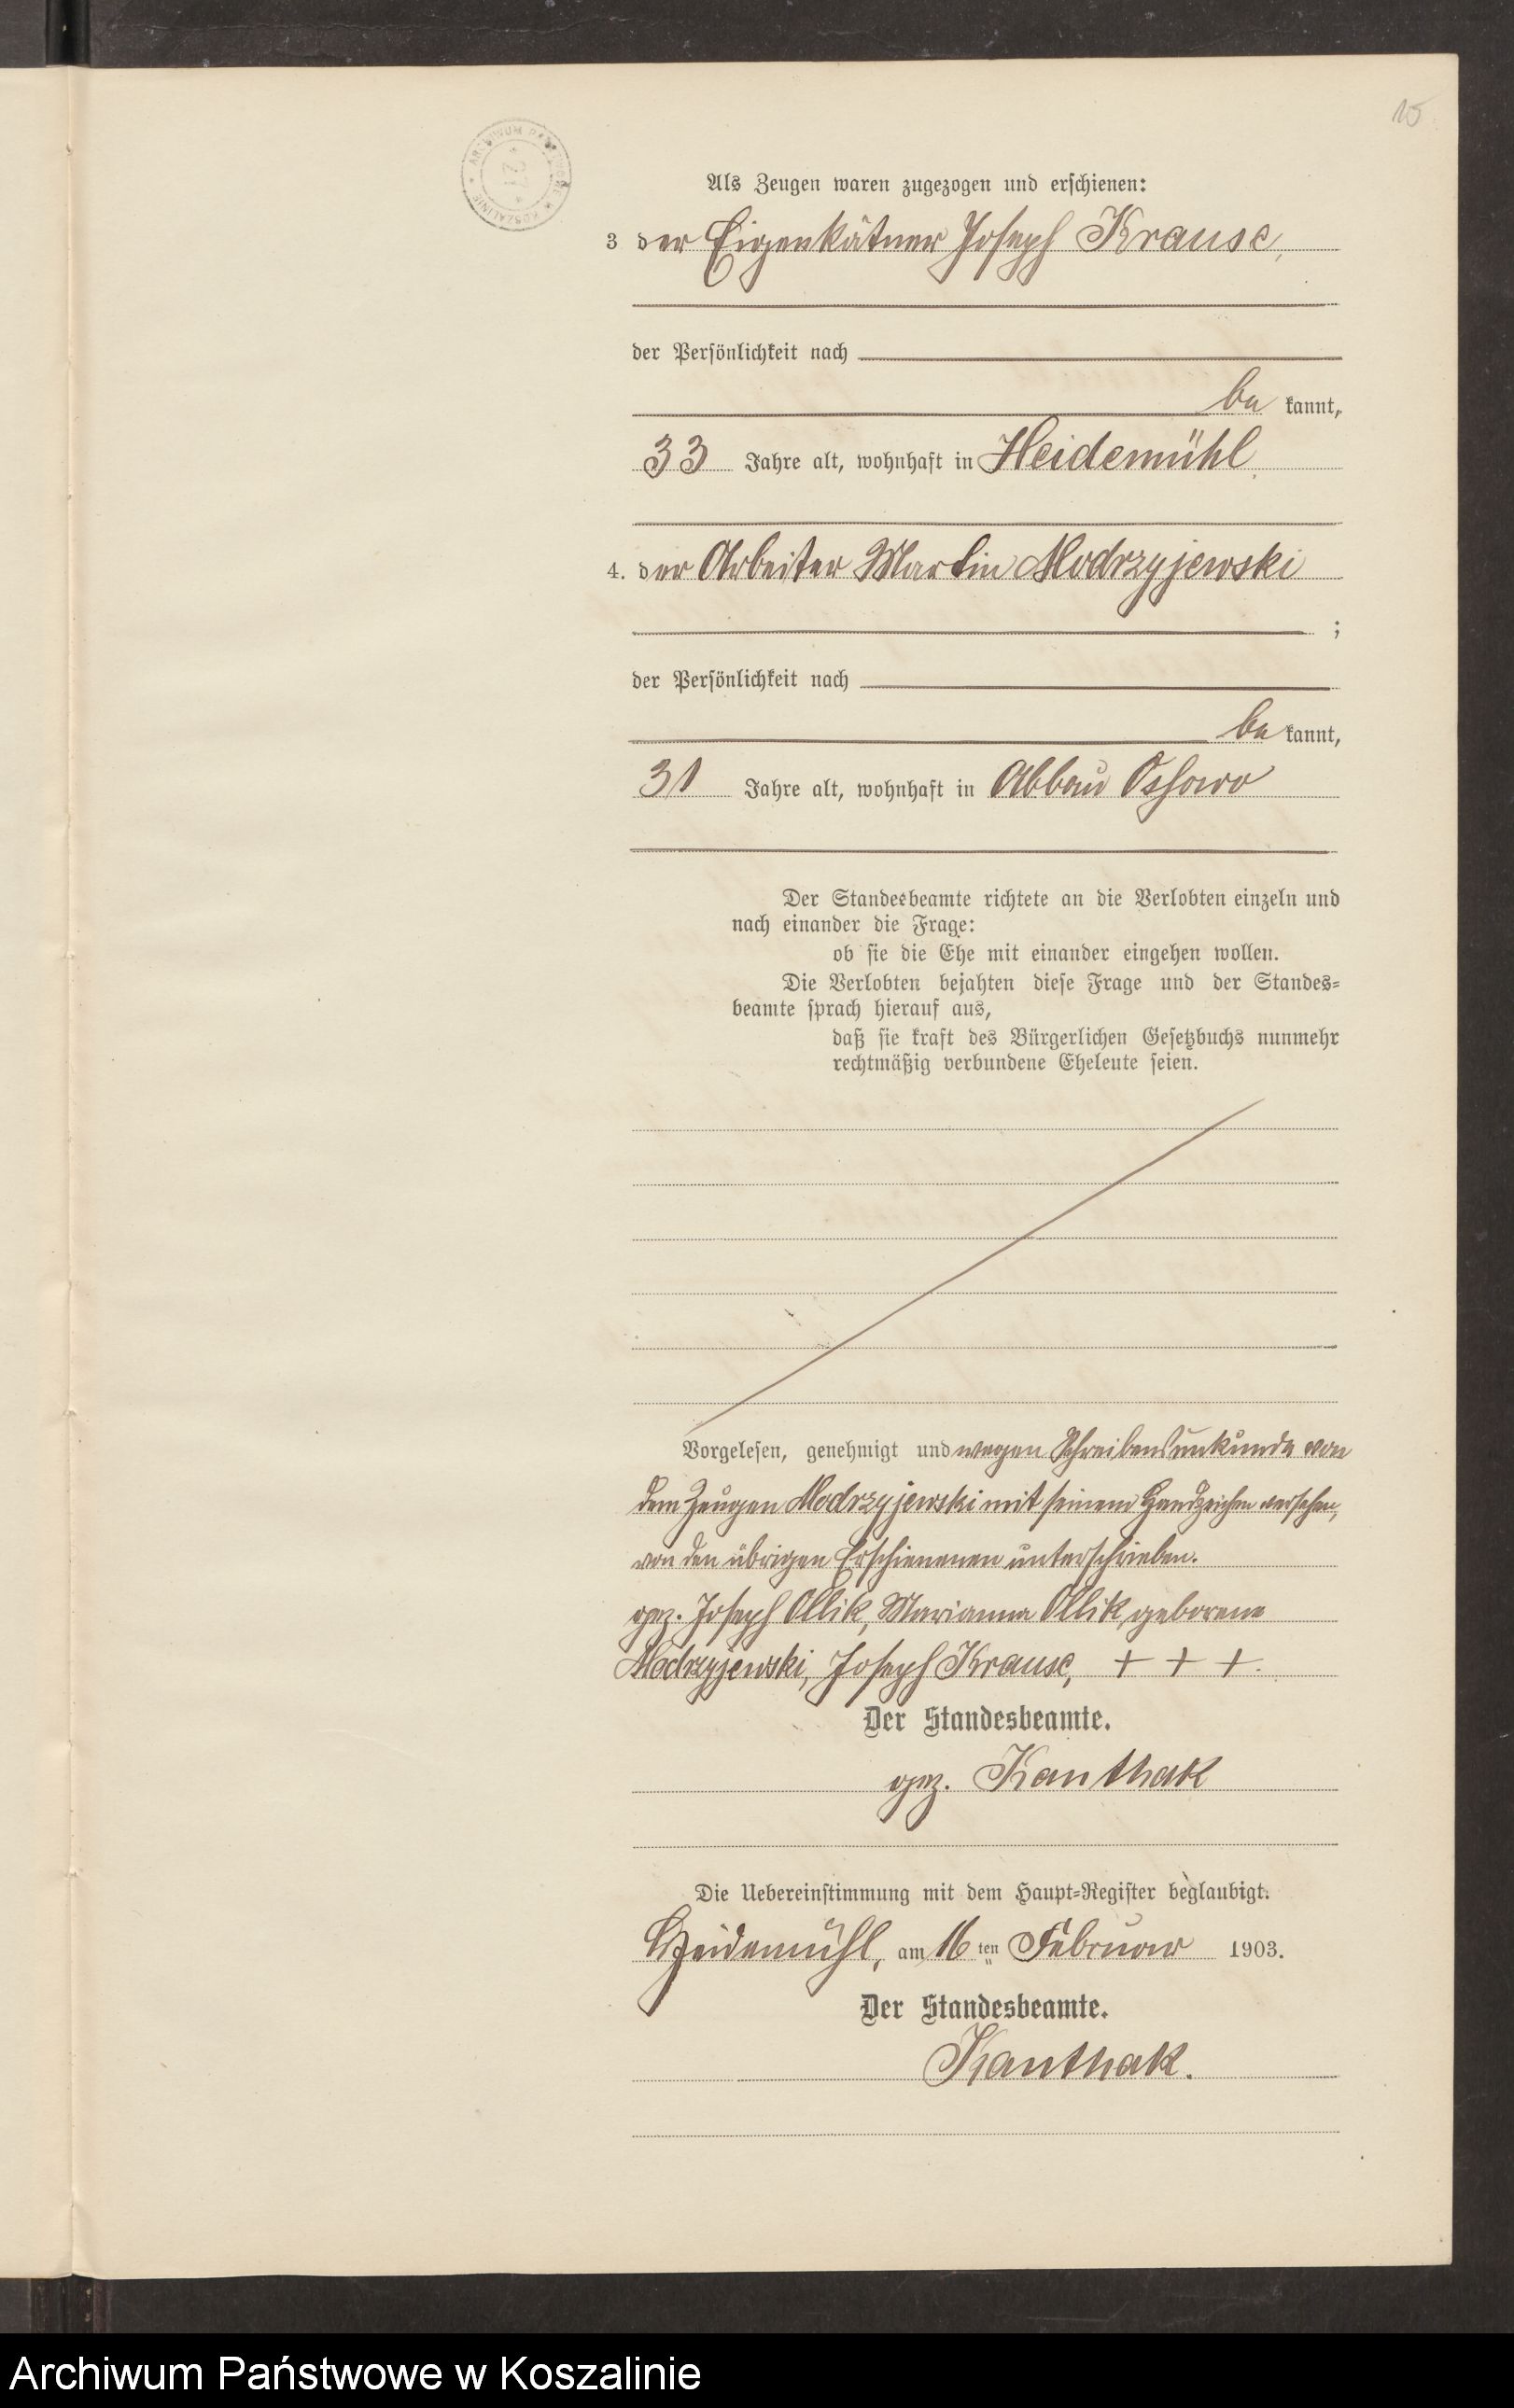 15
ARCHIWUM PAŃSTWOWE W KOSZALINIE
Als Zeugen waren zugezogen und erschienen:
3 der Eigenkätner Joseph Krause,
der Persönlichkeit nach
be kannt,
33 Jahre alt, wohnhaft in Heidemühl
4. der Arbeiter Martin Modrzyjewski
;
der Persönlichkeit nach
be kannt,
31 Jahre alt, wohnhaft in Abbau Ossowo
Der Standesbeamte richtete an die Verlobten einzeln und
nach einander die Frage:
ob sie die Ehe mit einander eingehen wollen.
Die Verlobten bejahten diese Frage und der Standes-
beamte sprach hierauf aus,
daß sie kraft des Bürgerlichen Gesetzbuchs nunmehr
rechtmäßig verbundene Eheleute seien.
Vorgelesen, genehmigt und wegen Schreibensunkunde von
dem Zeugen Modrzyjewski mit seinem Handzeichen versehen,
von den übrigen Erschienenen unterschrieben.
gez. Joseph Ollik, Marianna Ollik, geborene
Modrzyjewski, Joseph Krause, + + +.
Der Standesbeamte.
gez. Kanthak
Die Uebereinstimmung mit dem Haupt-Register beglaubigt.
Heidemühl, am 16 ten Februar 1903.
Der Standesbeamte.
Kanthak.
Archiwum Państwowe w Koszalinie